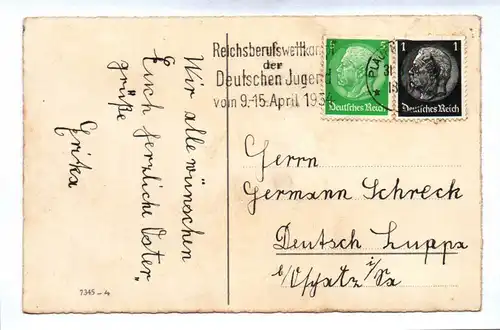 Wir alle wünschen
Euch herzliche Oster,
grüße
Erika
7345 - 4
Reichsberufswettkam
der
Deutschen Jugend
vom 9.-15. April 1934
5
Deutsches Reich
1
Deutsches Reich
PLA
Herrn
Hermann Schreck
Deutsch Luppa
b/Oschatz i/Sa